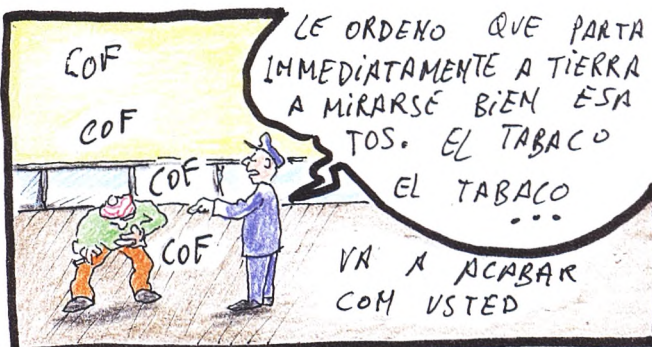 COF
COF
COF
COF
LE ORDENO QUE PARTA
IMMEDIATAMENTE A TIERRA
A MIRARSE BIEN ESA
TOS. EL TABACO
EL TABACO
...
VA A ACABAR
COM USTED